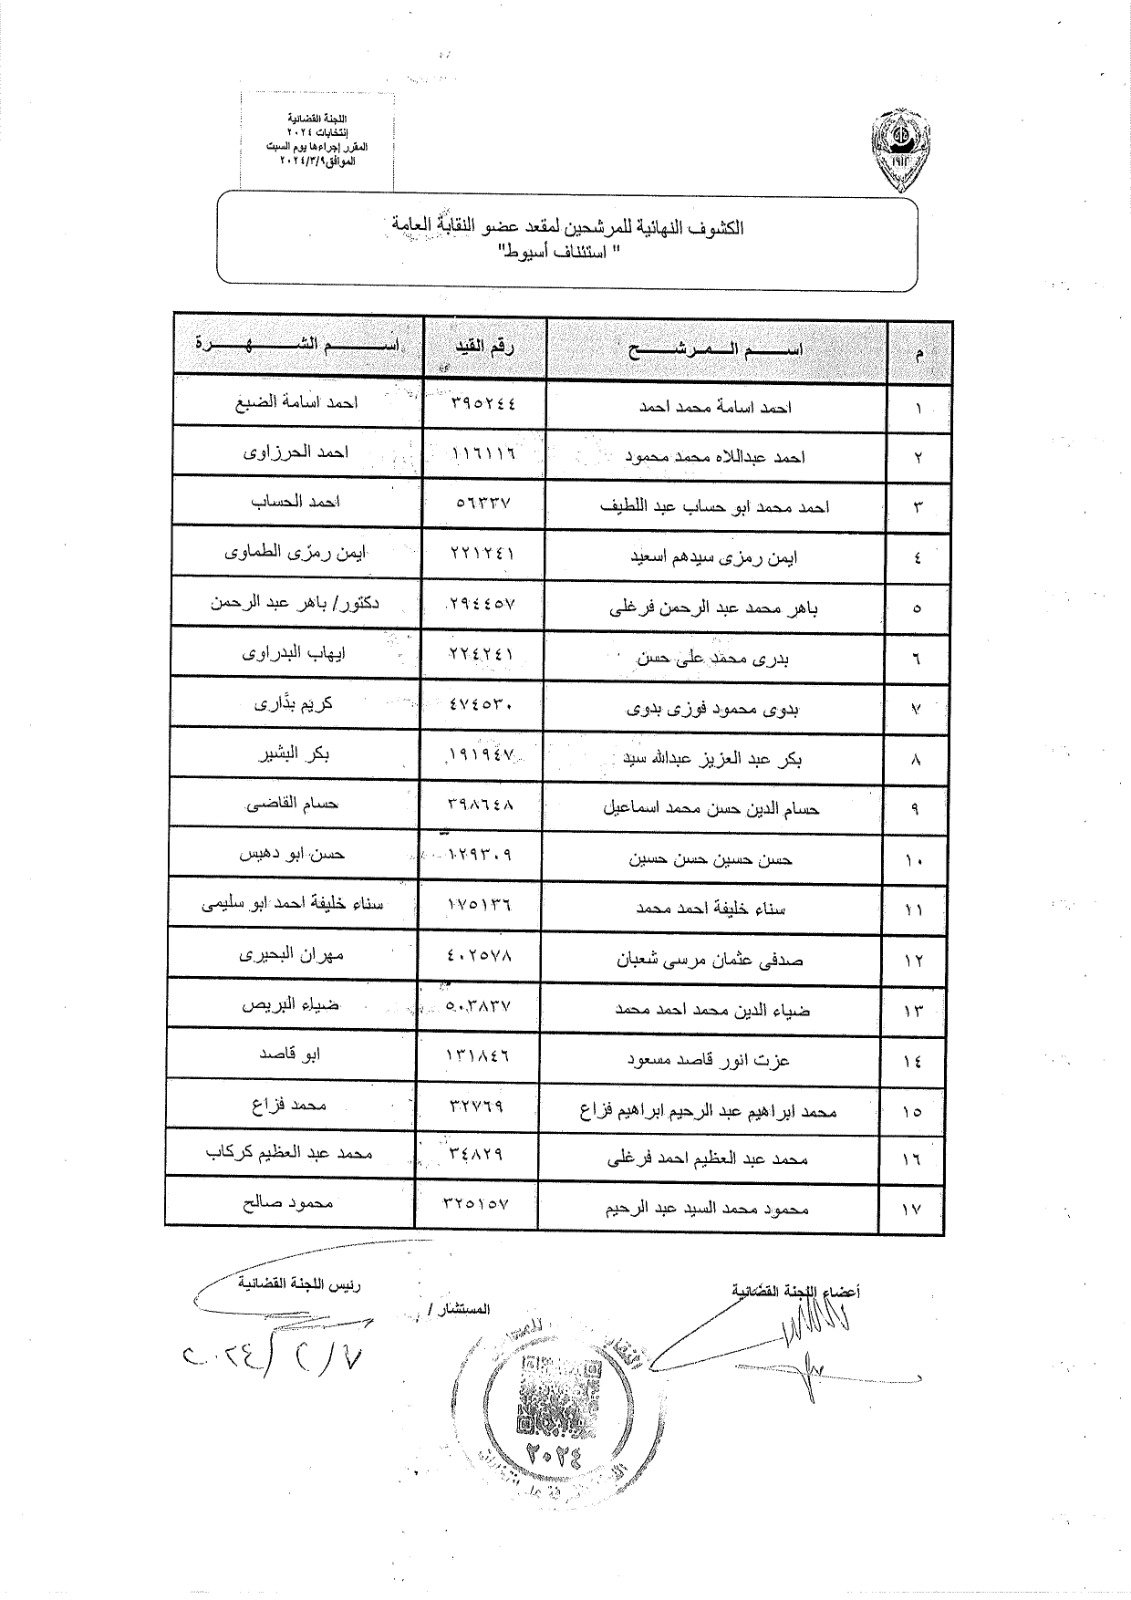 اللجنة القضائية
إنتخابات ٢٠٢٤
المقرر إجراءها يوم السبت
الموافق٢٠٢٤/٣/٩
١٩١٢
الكشوف النهائية للمرشحين لمقعد عضو النقابة العامة
" استئناف أسيوط"
م اســـم الـمـرشـــح رقم القيد اســـم الشـــهـــرة
١ احمد اسامة محمد احمد ٣٩٥٢٤٤ احمد اسامة الضبغ
٢ احمد عبداللاه محمد محمود ١١٦١١٦ احمد الحرزاوى
٣ احمد محمد ابو حساب عبد اللطيف ٥٦٣٣٧ احمد الحساب
٤ ايمن رمزى سيدهم اسعيد ٢٢١٢٤١ ايمن رمزى الطماوى
٥ باهر محمد عبد الرحمن فرغلى ٢٩٤٤٥٧ دكتور/ باهر عبد الرحمن
٦ بدرى محمد على حسن ٢٢٤٢٤١ ايهاب البدراوى
٧ بدوى محمود فوزى بدوى ٤٧٤٥٣٠ كريم بدَّارى
٨ بكر عبد العزيز عبدالله سيد ١٩١٩٤٧ بكر البشير
٩ حسام الدين حسن محمد اسماعيل ٣٩٨٦٤٨ حسام القاضى
١٠ حسن حسين حسن حسين ١٢٩٣٠٩ حسن ابو دهيس
١١ سناء خليفة احمد محمد ١٧٥١٣٦ سناء خليفة احمد ابو سليمى
١٢ صدفى عثمان مرسى شعبان ٤٠٢٥٧٨ مهران البحيرى
١٣ ضياء الدين محمد احمد محمد ٥٠٣٨٣٧ ضياء البريص
١٤ عزت انور قاصد مسعود ١٣١٨٤٦ ابو قاصد
١٥ محمد ابراهيم عبد الرحيم ابراهيم فزاع ٣٢٧٦٩ محمد فزاع
١٦ محمد عبد العظيم احمد فرغلى ٣٤٨٢٩ محمد عبد العظيم كركاب
١٧ محمود محمد السيد عبد الرحيم ٣٢٥١٥٧ محمود صالح
أعضاء اللجنة القضائية
رئيس اللجنة القضائية
المستشار /
٢٠٢٤/٢/٧
٢٠٢٤